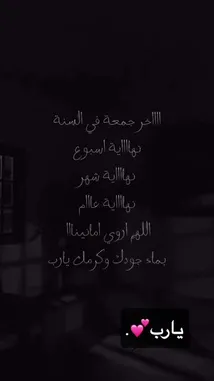 اااااخر جمعة في السنة
نهااااية اسبوع
نهااااية شهر
نهااااية عااام
اللهم اروي امانيناا
بماء جودك وكرمك يارب
يارب💕.